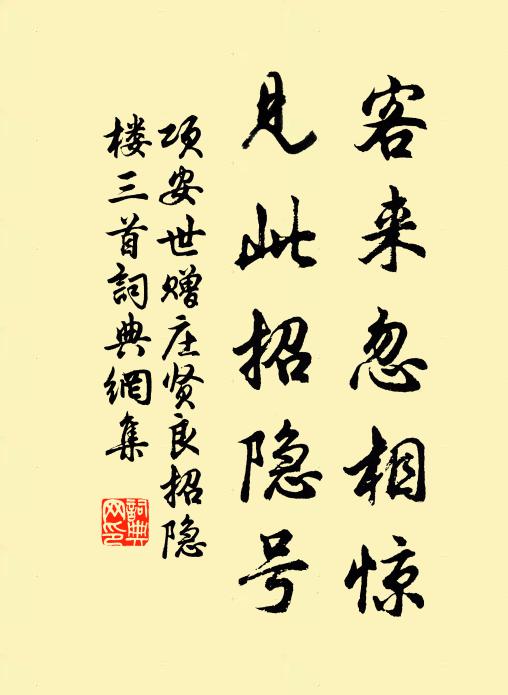 客来忽相惊
见此招隐号
项安世赠庄贤良招隐
楼三首词典网集
詞典
网印